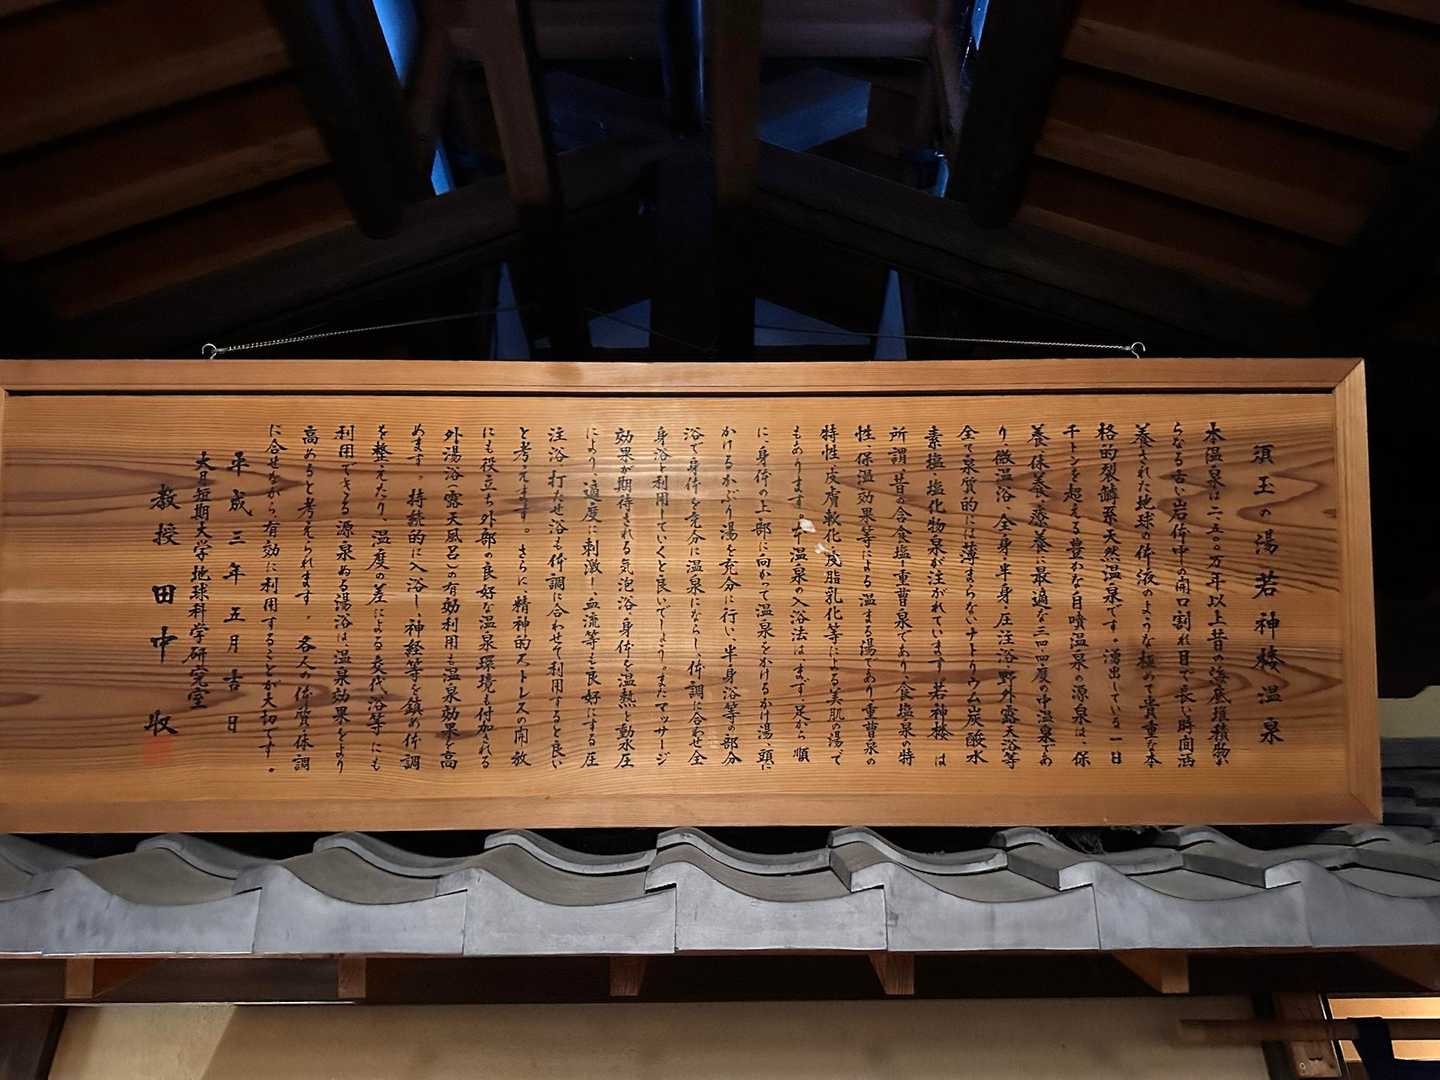 須玉の湯 若神楼温泉
本温泉は二五〇〇万年以上昔の海底堆積物か
らなる古い岩体中の開口割れ目で長い時間活
養された地球の体液のような極めて貴重な本
格的裂罅系天然温泉です。湧出している一日
千トンを超える豊かな自噴温泉の源泉は、保
養・休養・療養に最適な三〜四度の中温泉であ
り、微温浴、全身・半身・圧注浴・野外露天浴等
全て泉質的には薄まらないナトリウム炭酸水
素塩・塩化物泉が注がれています。若神楼は
所謂、昔の含食塩・重曹泉であり、食塩泉の特
性、保温効果等による温まる湯であり重曹泉の
特性・皮膚軟化・皮脂乳化等による美肌の湯で
もあります。本温泉の入浴法は、まず、足から順
に、身体の上部に向かって温泉をかけるかけ湯、頭に
かけるかぶり湯を充分に行い、半身浴等の部分
浴で身体を充分に温泉にならし、体調に合わせ全
身浴と利用していくと良いでしょう。またマッサージ
効果が期待される気泡浴・身体を温熱と動水圧
により、適度に刺激し、血流等も良好にする圧
注浴、打たせ浴も体調に合わせて利用すると良い
と考えます。さらに、精神的ストレスの開放
にも役立ち、外部の良好な温泉環境も付加される
外湯浴（露天風呂）の有効利用も温泉効果を高
めます。持続的に入浴し、神経等を鎮め体調
を整えたり、温度の差による交代浴等にも
利用できる源泉ぬる湯浴は温泉効果をより
高めると考えられます。各人の体質・体調
に合せながら、有効に利用することが大切です。
平成三年五月吉日
大月短期大学地球科学研究室
教授 田中 収